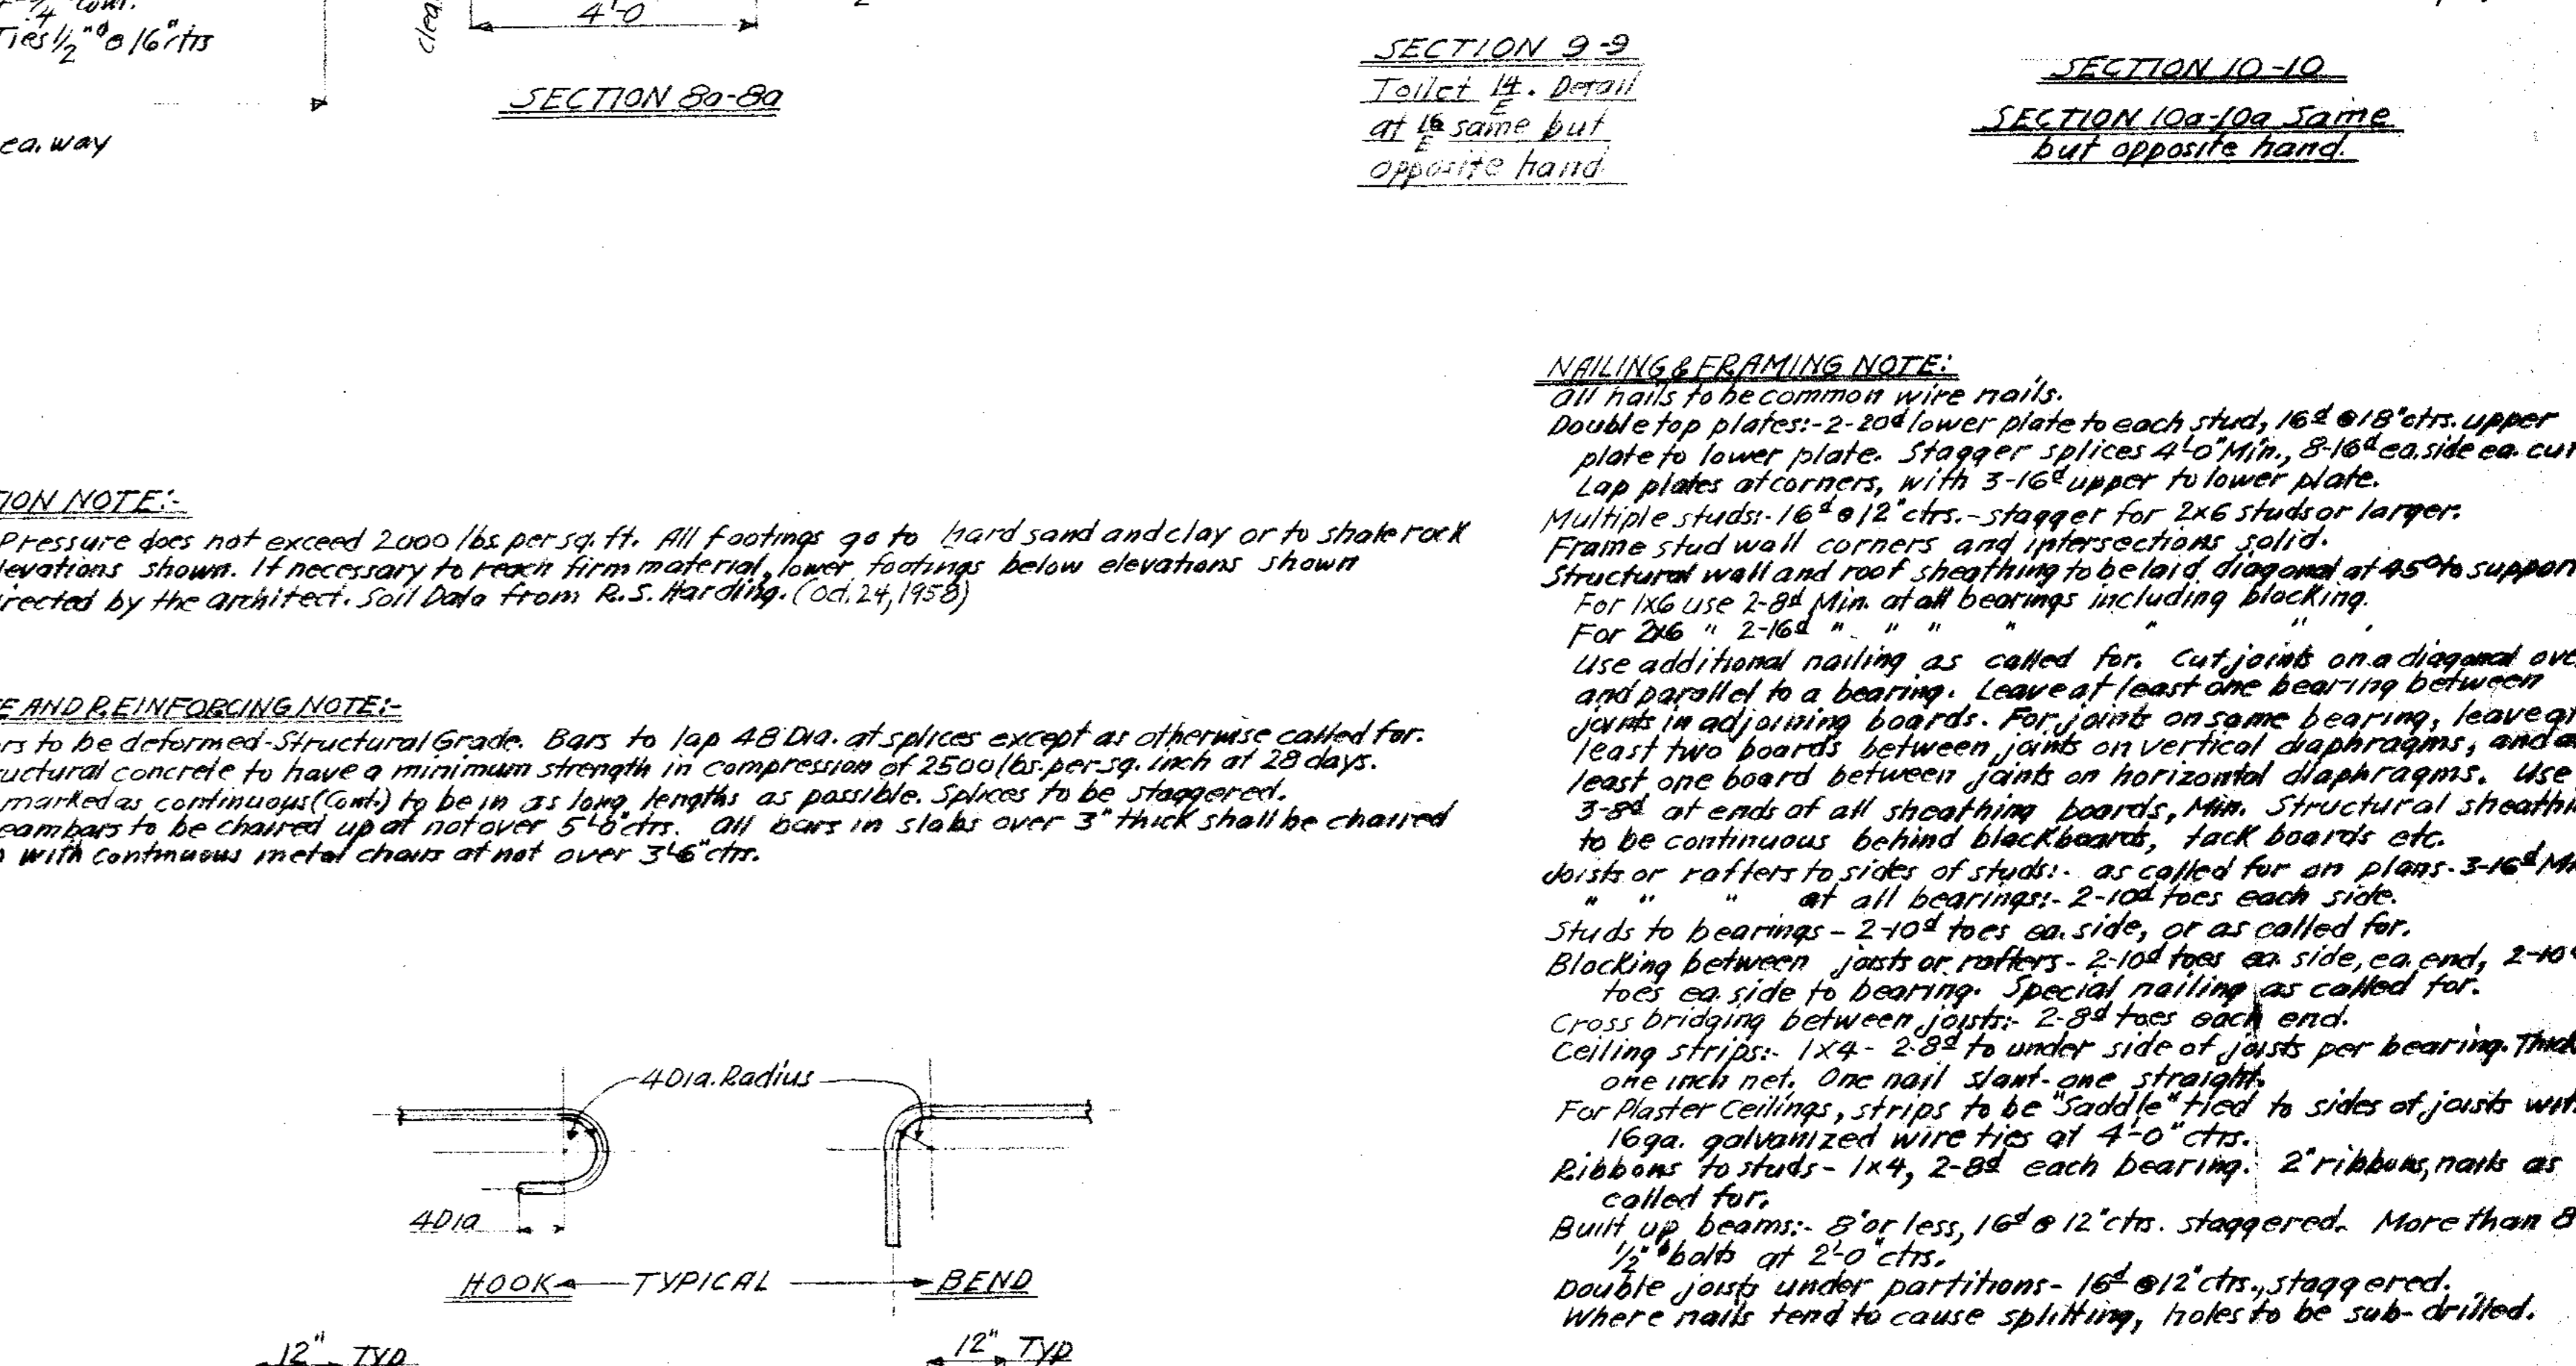 Ties 1/2"ø @ 16"ctrs
ea. way
clea
4'-0
SECTION 8a-8a
SECTION 9-9
Toilet 14/E. Detail
at 16/E same but
opposite hand
SECTION 10-10
SECTION 10a-10a Same
but opposite hand.
TION NOTE:-
Pressure does not exceed 2000 lbs. per sq. ft. All footings go to hard sand and clay or to shale rock
levations shown. If necessary to reach firm material, lower footings below elevations shown
irected by the architect. Soil Data from R.S. Harding. (Oct. 24, 1958)
E AND REINFORCING NOTE:-
rs to be deformed-Structural Grade. Bars to lap 48 Dia. at splices except as otherwise called for.
uctural concrete to have a minimum strength in compression of 2500 lbs. per sq. inch at 28 days.
marked as continuous (Cont.) to be in as long lengths as possible. Splices to be staggered.
eam bars to be chaired up at not over 5'-0" ctrs. All bars in slabs over 3" thick shall be chaired
with continuous metal chairs at not over 3'-6" ctrs.
4 Dia. Radius
4 Dia
HOOK TYPICAL BEND
12" TYP
12" TYP
NAILING & FRAMING NOTE:
All nails to be common wire nails.
Double top plates:- 2-20d lower plate to each stud, 16d @ 18" ctrs. upper
plate to lower plate. Stagger splices 4'-0" Min., 8-16d ea. side ea. cut
Lap plates at corners, with 3-16d upper to lower plate.
Multiple studs:- 16d @ 12" ctrs. - stagger for 2x6 studs or larger.
Frame stud wall corners and intersections solid.
Structural wall and roof sheathing to be laid diagonal at 45° to support
For 1x6 use 2-8d Min. at all bearings including blocking.
For 2x6 " 2-16d " " " " " " "
Use additional nailing as called for. Cut joints on a diagonal ove
and parallel to a bearing. Leave at least one bearing between
joints in adjoining boards. For joints on same bearing, leave at
least two boards between joints on vertical diaphragms, and a
least one board between joints on horizontal diaphragms. Use
3-8d at ends of all sheathing boards, Min. Structural sheathi
to be continuous behind blackboards, tack boards etc.
Joists or rafters to sides of studs:- as called for on plans. 3-16d Mi
" " " at all bearings:- 2-10d toes each side.
Studs to bearings - 2-10d toes ea. side, or as called for.
Blocking between joists or rafters - 2-10d toes ea. side, ea. end, 2-10
toes ea. side to bearing. Special nailing as called for.
Cross bridging between joists:- 2-8d toes each end.
Ceiling strips:- 1x4 - 2-8d to under side of joists per bearing. Thick
one inch net. One nail slant - one straight.
For Plaster Ceilings, strips to be "Saddle" tied to sides of joists wit
16ga. galvanized wire ties at 4'-0" ctrs.
Ribbons to studs - 1x4, 2-8d each bearing. 2" ribbons, nails as
called for.
Built up beams:- 8" or less, 16d @ 12" ctrs. staggered. More than 8
1/2"ø bolts at 2'-0" ctrs.
Double joists under partitions - 16d @ 12" ctrs., staggered.
Where nails tend to cause splitting, holes to be sub-drilled.